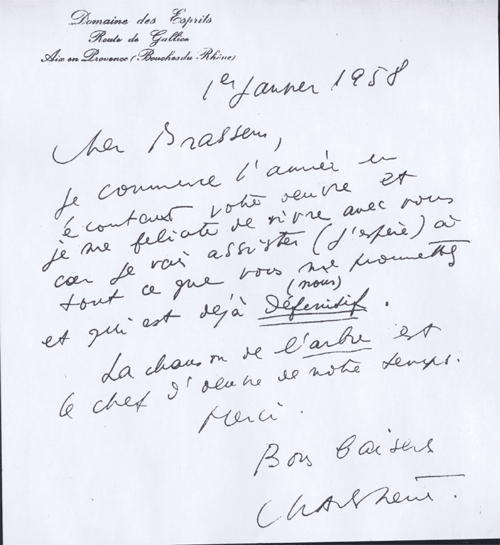 Domaine des Esprits
Route de Gallice
Aix en Provence (Bouches du Rhône)
1er Janvier 1958
Cher Brassens,
je commence l'année en
écoutant votre œuvre et
je me félicite de vivre avec vous
car je vais assister (j'espère) à
tout ce que vous me promettez
(nous)
et qui est déjà définitif.
La chanson de l'arbre est
le chef d'œuvre de notre temps.
Merci.
Bons baisers
Charles Trenet.